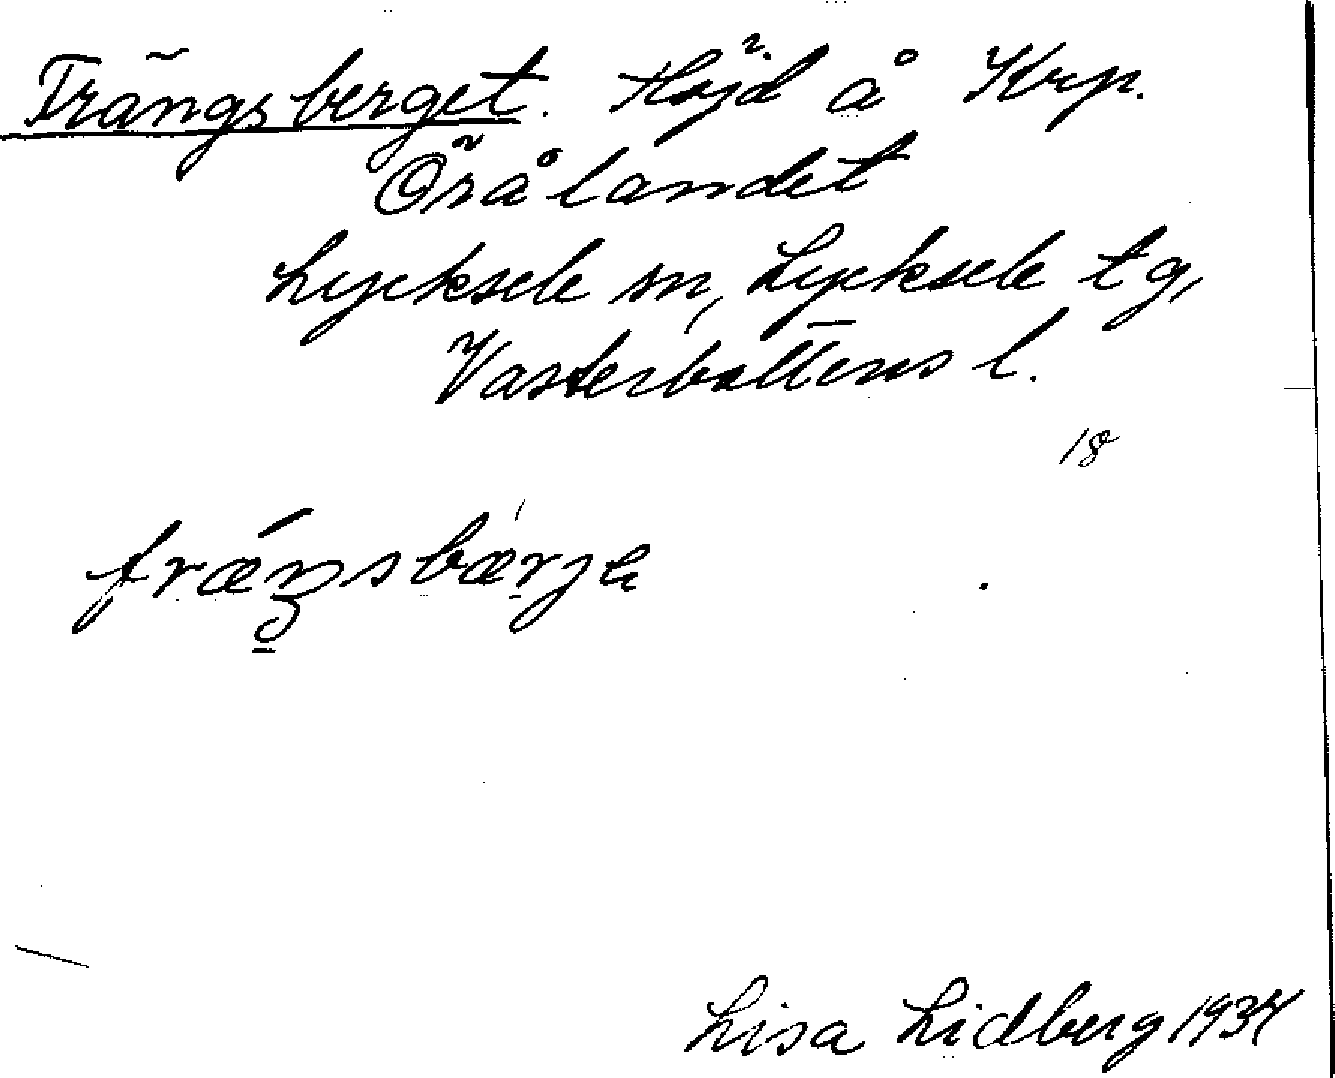 Trängsberget. Höjd å Krp.
Örålandet
Lycksele sn, Lycksele tg,
Västerbottens l.
18
Lisa Lidberg 1934